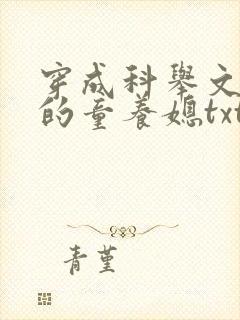 穿成科举文
的童养媳txt
青堇